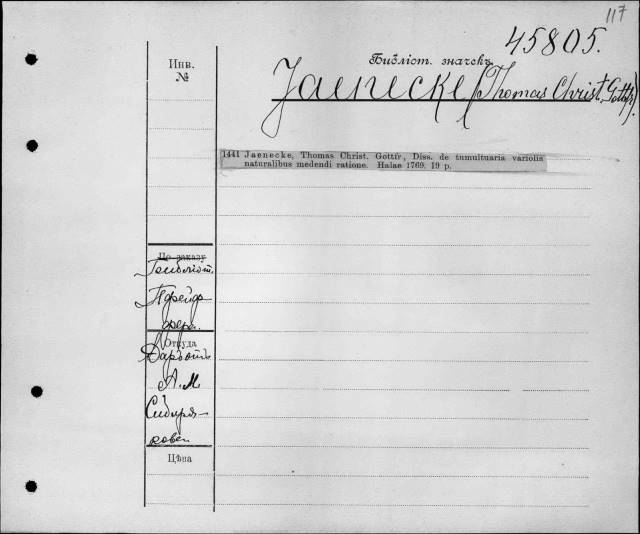 117
45805.
Библіот. значекъ
Jaenecke (Thomas Christ. Gottfr).
Инв.
№
1441 Jaenecke, Thomas Christ. Gottfr, Diss. de tumultuaria variolis
naturalibus medendi ratione. Halae 1769. 19 p.
По заказу
Библіот.
Пфейф-
фера.
Откуда
Даръ отъ
А. М.
Сибиря-
кова
Цѣна